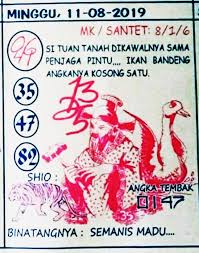 MINGGU, 11-08-2019
MK / SANTET: 8/1/6
SI TUAN TANAH DIKAWALNYA SAMA
PENJAGA PINTU,,,, IKAN BANDENG
ANGKANYA KOSONG SATU.
35
47
82
SHIO :
ANGKA TEMBAK
0147
35
BINATANGNYA : SEMANIS MADU....